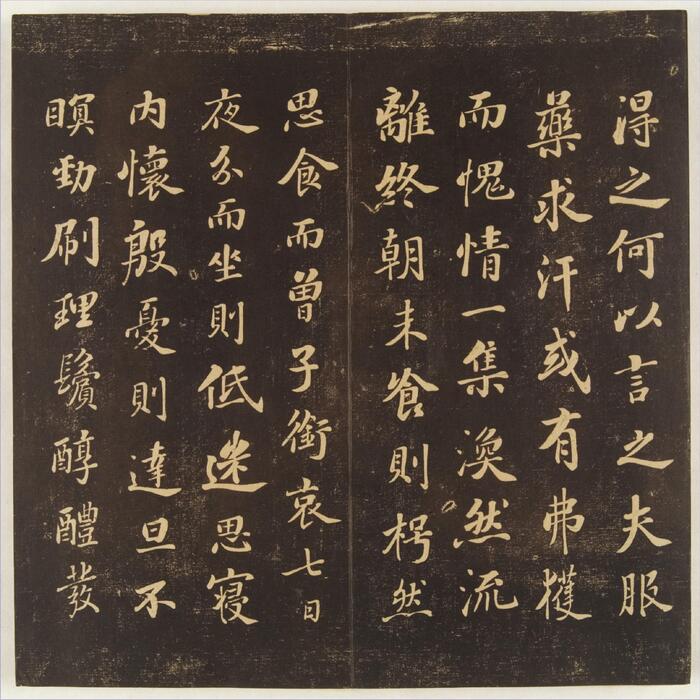 得之何以言之夫服
藥求汗或有弗獲
而愧情一集渙然流
離終朝未飡則枵然
思食而曾子銜哀七日
夜分而坐則低迷思寢
内懷殷憂則達旦不
瞑勁刷理鬢醇醴發